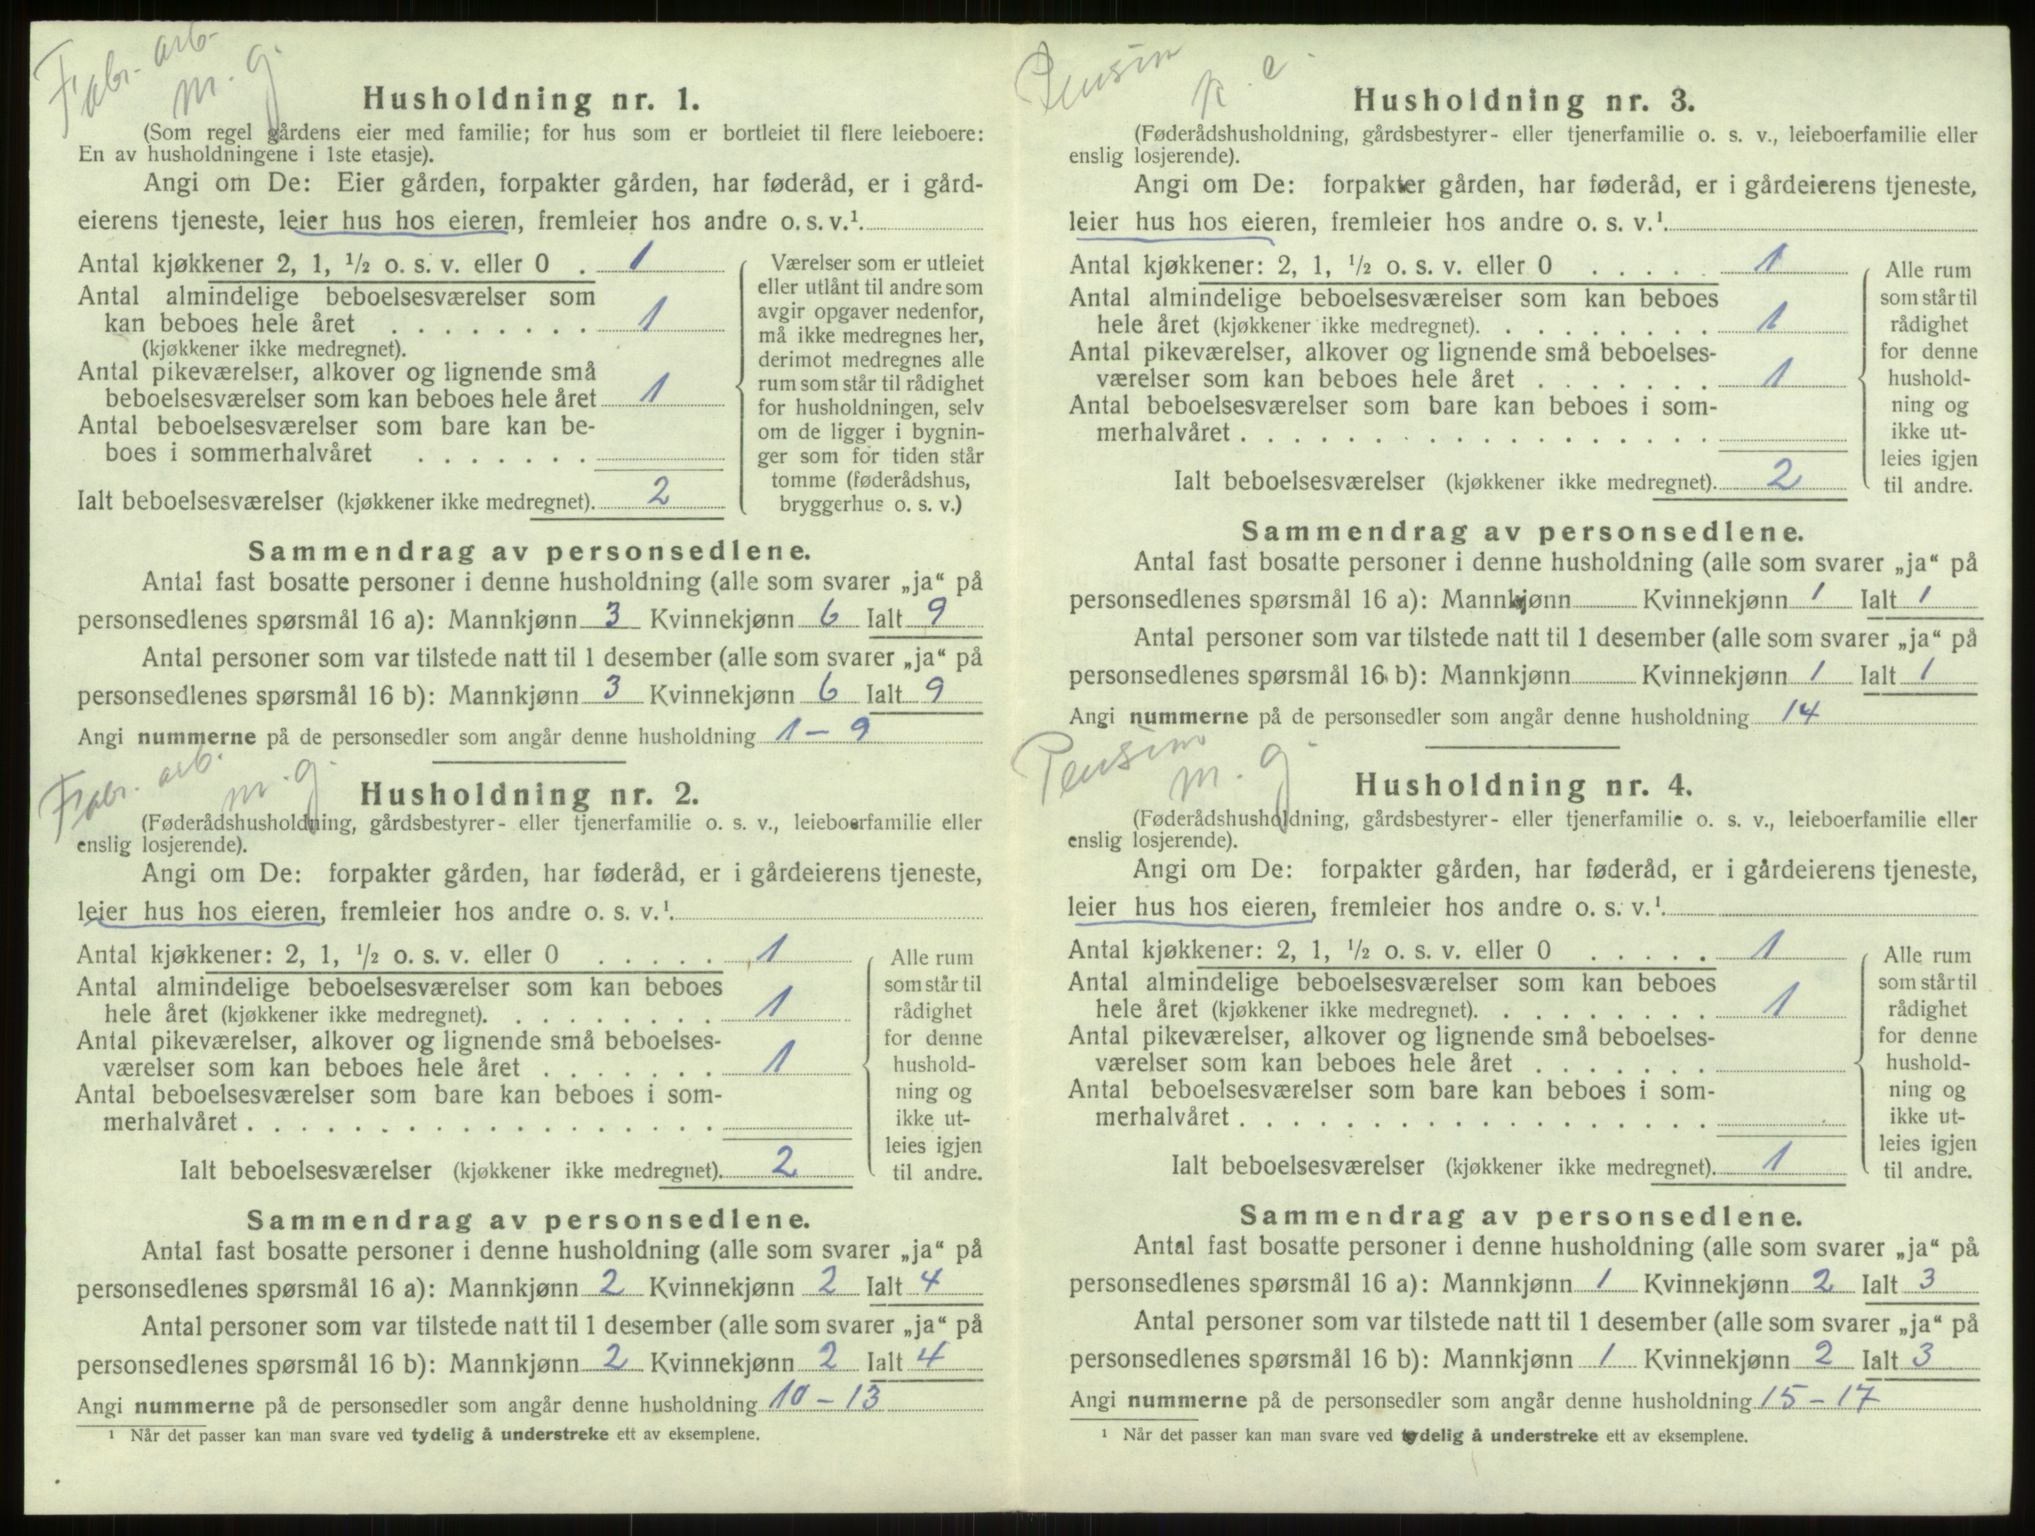 Fabr. arb.
m. g.
Husholdning nr. 1.
(Som regel gårdens eier med familie; for hus som er bortleiet til flere leieboere:
En av husholdningene i 1ste etasje).
Angi om De: Eier gården, forpakter gården, har føderåd, er i gård-
eierens tjeneste, leier hus hos eieren, fremleier hos andre o. s. v.¹.
Antal kjøkkener 2, 1, ½ o. s. v. eller 0 . 1
Antal almindelige beboelsesværelser som
kan beboes hele året . . . . . . . . 1
(kjøkkener ikke medregnet).
Antal pikeværelser, alkover og lignende små
beboelsesværelser som kan beboes hele året 1
Antal beboelsesværelser som bare kan be-
boes i sommerhalvåret . . . . . . .
Ialt beboelsesværelser (kjøkkener ikke medregnet). 2
Værelser som er utleiet
eller utlånt til andre som
avgir opgaver nedenfor,
må ikke medregnes her,
derimot medregnes alle
rum som står til rådighet
for husholdningen, selv
om de ligger i bygnin-
ger som for tiden står
tomme (føderådshus,
bryggerhus o. s. v.)
Sammendrag av personsedlene.
Antal fast bosatte personer i denne husholdning (alle som svarer „ja“ på
personsedlenes spørsmål 16 a): Mannkjønn 3 Kvinnekjønn 6 Ialt 9
Antal personer som var tilstede natt til 1 desember (alle som svarer „ja“ på
personsedlenes spørsmål 16 b): Mannkjønn 3 Kvinnekjønn 6 Ialt 9
Angi nummerne på de personsedler som angår denne husholdning 1 – 9
Fabr. arb.
m. g.
Husholdning nr. 2.
(Føderådshusholdning, gårdsbestyrer- eller tjenerfamilie o. s. v., leieboerfamilie eller
enslig losjerende).
Angi om De: forpakter gården, har føderåd, er i gårdeierens tjeneste,
leier hus hos eieren, fremleier hos andre o. s. v.¹.
Antal kjøkkener: 2, 1, ½ o. s. v. eller 0 . . . . . 1
Antal almindelige beboelsesværelser som kan beboes
hele året (kjøkkener ikke medregnet). . . . . . . . . 1
Antal pikeværelser, alkover og lignende små beboelses-
værelser som kan beboes hele året . . . . . . . 1
Antal beboelsesværelser som bare kan beboes i som-
merhalvåret . . . . . . . . . . . . . . . . . .
Ialt beboelsesværelser (kjøkkener ikke medregnet). 2
Alle rum
som står til
rådighet
for denne
hushold-
ning og
ikke ut-
leies igjen
til andre.
Sammendrag av personsedlene.
Antal fast bosatte personer i denne husholdning (alle som svarer „ja“ på
personsedlenes spørsmål 16 a): Mannkjønn 2 Kvinnekjønn 2 Ialt 4
Antal personer som var tilstede natt til 1 desember (alle som svarer „ja“ på
personsedlenes spørsmål 16 b): Mannkjønn 2 Kvinnekjønn 2 Ialt 4
Angi nummerne på de personsedler som angår denne husholdning 10 – 13
¹ Når det passer kan man svare ved tydelig å understreke ett av eksemplene.
Pension
Husholdning nr. 3.
(Føderådshusholdning, gårdsbestyrer- eller tjenerfamilie o. s. v., leieboerfamilie eller
enslig losjerende).
Angi om De: forpakter gården, har føderåd, er i gårdeierens tjeneste,
leier hus hos eieren, fremleier hos andre o. s. v.¹.
Antal kjøkkener: 2, 1, ½ o. s. v. eller 0 . . . . . 1
Antal almindelige beboelsesværelser som kan beboes
hele året (kjøkkener ikke medregnet). . . . . . . . . 1
Antal pikeværelser, alkover og lignende små beboelses-
værelser som kan beboes hele året . . . . . . . 1
Antal beboelsesværelser som bare kan beboes i som-
merhalvåret . . . . . . . . . . . . . . . . . .
Ialt beboelsesværelser (kjøkkener ikke medregnet). 2
Alle rum
som står til
rådighet
for denne
hushold-
ning og
ikke ut-
leies igjen
til andre.
Sammendrag av personsedlene.
Antal fast bosatte personer i denne husholdning (alle som svarer „ja“ på
personsedlenes spørsmål 16 a): Mannkjønn Kvinnekjønn 1 Ialt 1
Antal personer som var tilstede natt til 1 desember (alle som svarer „ja“ på
personsedlenes spørsmål 16 b): Mannkjønn Kvinnekjønn 1 Ialt 1
Angi nummerne på de personsedler som angår denne husholdning 14
Pension
m. g.
Husholdning nr. 4.
(Føderådshusholdning, gårdsbestyrer- eller tjenerfamilie o. s. v., leieboerfamilie eller
enslig losjerende).
Angi om De: forpakter gården, har føderåd, er i gårdeierens tjeneste,
leier hus hos eieren, fremleier hos andre o. s. v.¹.
Antal kjøkkener: 2, 1, ½ o. s. v. eller 0 . . . . . 1
Antal almindelige beboelsesværelser som kan beboes
hele året (kjøkkener ikke medregnet). . . . . . . . . 1
Antal pikeværelser, alkover og lignende små beboelses-
værelser som kan beboes hele året . . . . . . .
Antal beboelsesværelser som bare kan beboes i som-
merhalvåret . . . . . . . . . . . . . . . . . .
Ialt beboelsesværelser (kjøkkener ikke medregnet). 1
Alle rum
som står til
rådighet
for denne
hushold-
ning og
ikke ut-
leies igjen
til andre.
Sammendrag av personsedlene.
Antal fast bosatte personer i denne husholdning (alle som svarer „ja“ på
personsedlenes spørsmål 16 a): Mannkjønn 1 Kvinnekjønn 2 Ialt 3
Antal personer som var tilstede natt til 1 desember (alle som svarer „ja“ på
personsedlenes spørsmål 16 b): Mannkjønn 1 Kvinnekjønn 2 Ialt 3
Angi nummerne på de personsedler som angår denne husholdning 15 – 17
¹ Når det passer kan man svare ved tydelig å understreke ett av eksemplene.